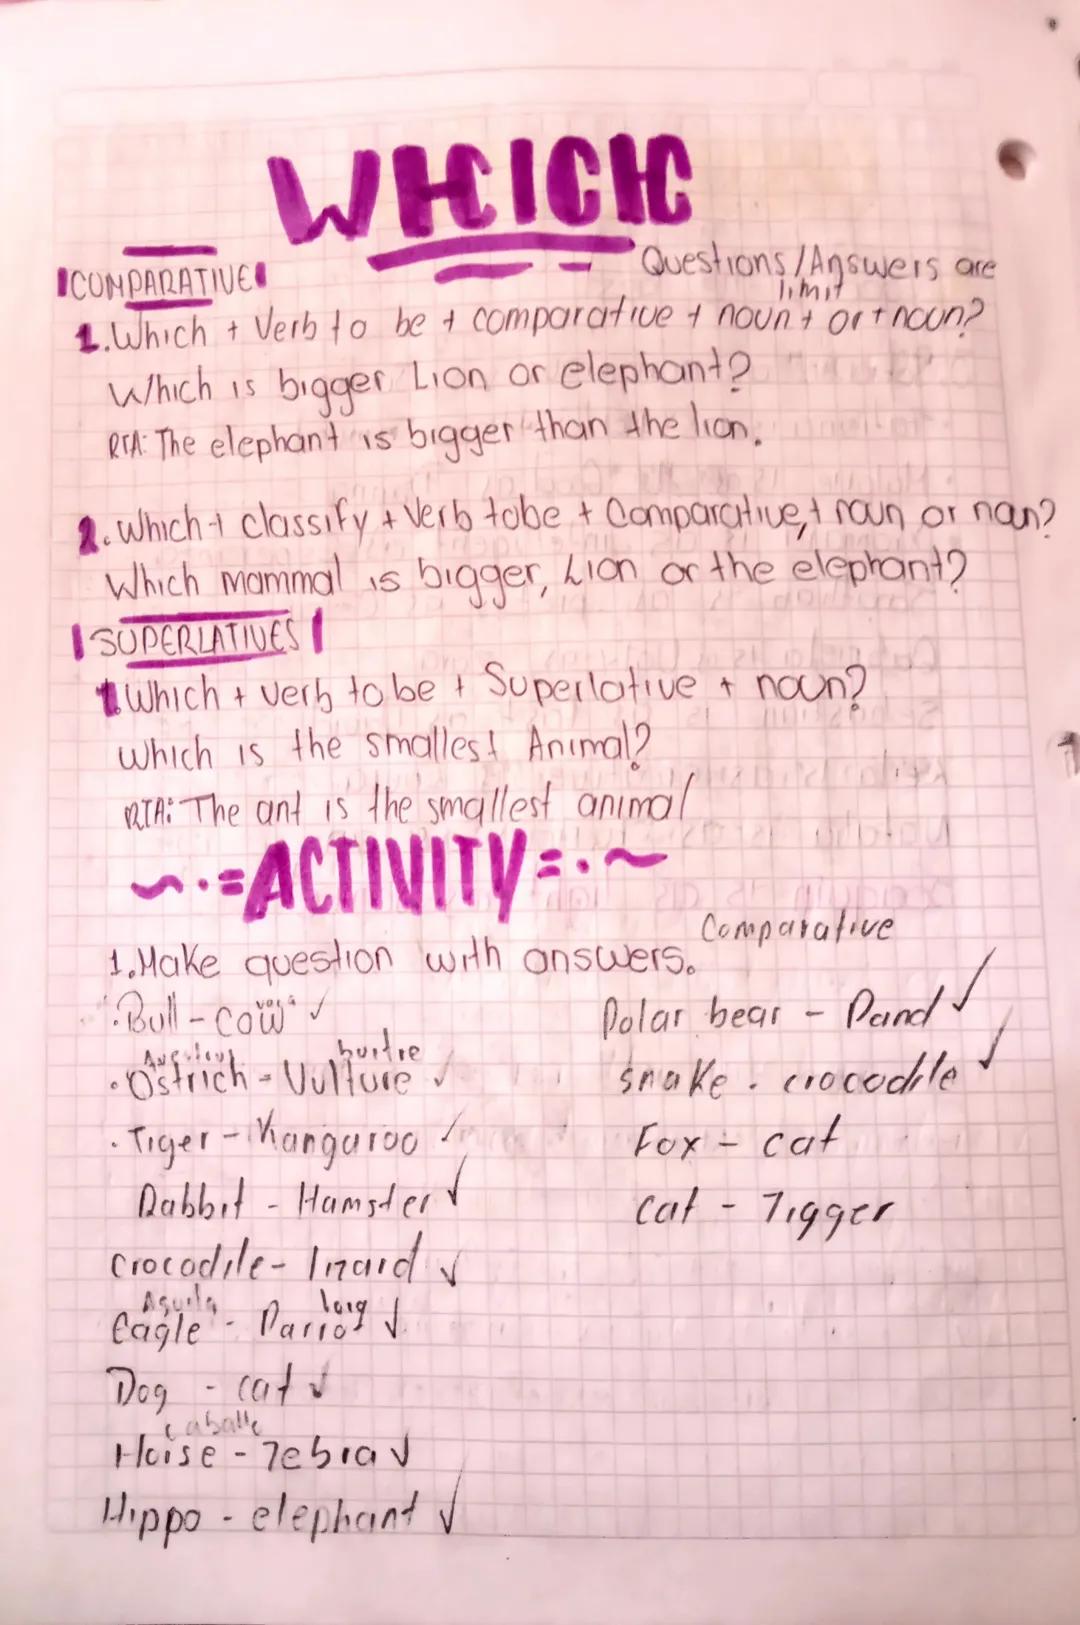 WHICH
Questions/Answers are
limit
COMPARATIVE
1. Which + Verb to be + comparative + noun + or + noun?
Which is bigger Lion or elephant?
RTA: The elephant is bigger than the lion.
2. Which + classify + Verb tobe + Comparative, + noun or noun?
Which mammal is bigger, Lion or the elephant?
SUPERLATIVES
1. Which + verb to be + Superlative + noun?
Which is the smallest Animal?
RTA: The ant is the smallest animal
~·=ACTIVITY=·~
Comparative
1. Make question with answers.
vaca
· Bull - cow ✓
buitre
· Ostrich - Vulture ✓
· Tiger - Kangaroo ✓
Rabbit - Hamster ✓
Crocodile - lizard ✓
Aguila loro
Eagle - Parrot ✓
Dog - cat ✓
caballo
Horse - Zebra ✓
Hippo - elephant ✓
Polar bear - Pand ✓
snake - crocodile ✓
Fox - cat
cat - Tigger